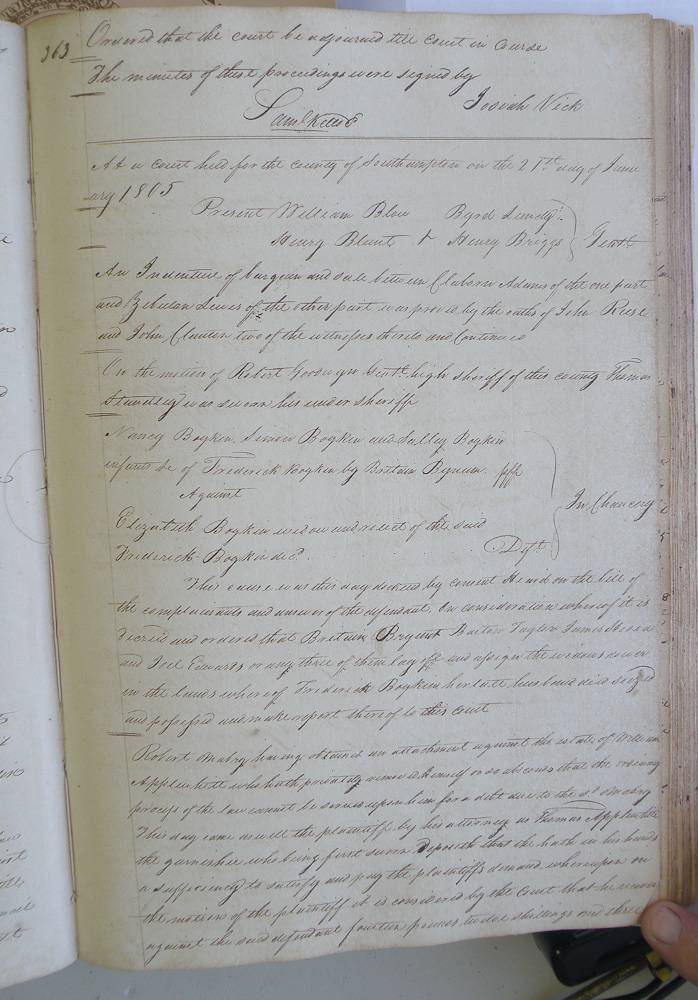 363
Ordered that the court be adjourned till court in course
The minutes of these proceedings were signed by
Josiah Vick
Sam Kello
At a court held for the county of Southampton on the 21st day of Janu
ary 1805
Present William Blow Byrd Lundy
Henry Blunt & Henry Briggs Gent
An Indenture of bargain and sale between Claborn Adams of the one part
and Zebulon Lewis of the other part was proved by the oaths of John Reese
and John Clanton two of the witnesses thereto and Continued
On the motion of Robert Goodwyn Gent high sheriff of this county Thomas
was sworn his under sheriff
Nancy Boykin, Simon Boykin and Salley Boykin
infants &c of Frederick Boykin by Britain Bynum plff
Against
Elizabeth Boykin widow and relict of the said
Frederick Boykin decd. Deft
In Chancery
This cause was this day docketed by consent Heard on the bill of
the complainants and answer of the defendant. On consideration whereof it is
decreed and ordered that Britain Bryant Barton Taylor James
and Joel Edwards or any three of them lay off and assign the widows dower
in the lands whereof Frederick Boykin her late husband died seized
and possessed and make report thereof to this Court
Robert Mabry having obtained an attachment against the estate of William
Applewhite who hath privately removed himself or so absconds that the ordinary
process of the law cannot be served upon him for a debt due to the sd Mabry
This day came as well the plaintiff by his attorney as Thomas Applewhite
the garnishee who being first sworn deposeth that he hath in his hands
a sufficiency to satisfy and pay the plaintiffs demand, whereupon on
the motion of the plaintiff it is considered by the Court that he recover
against the said defendant fourteen pounds twelve shillings and three